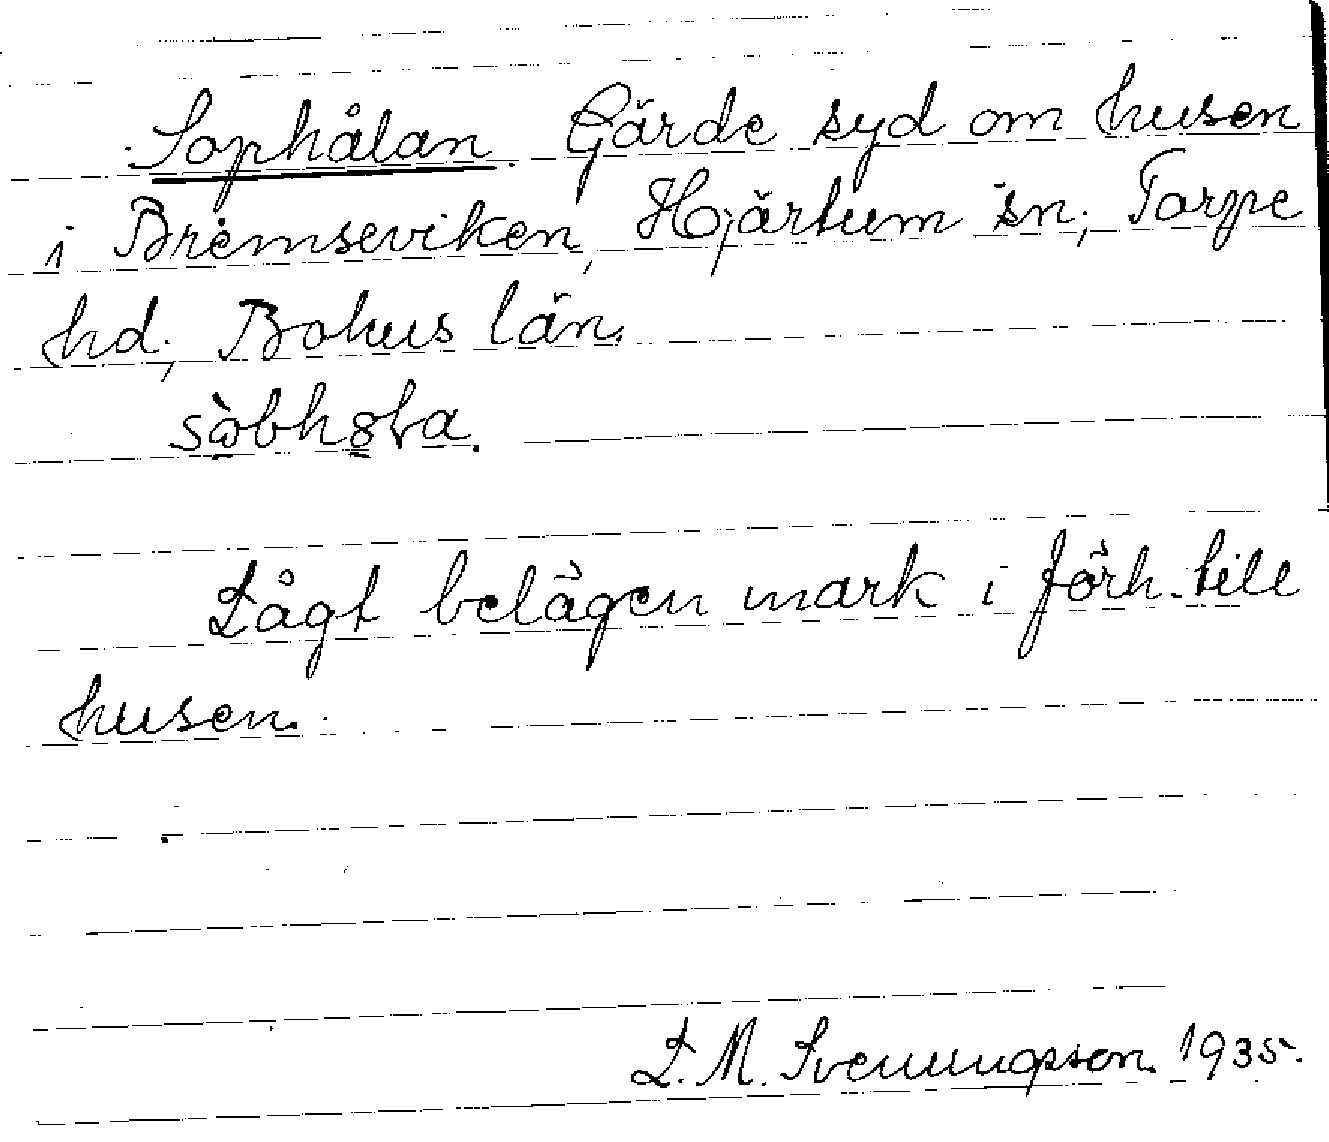 Sophålan. Gärde syd om husen
i Bremseviken, Hjärtum sn, Torpe
hd, Bohus län.
Lågt belägen mark i förh. till
husen.
L. M. Svenungsson 1935.